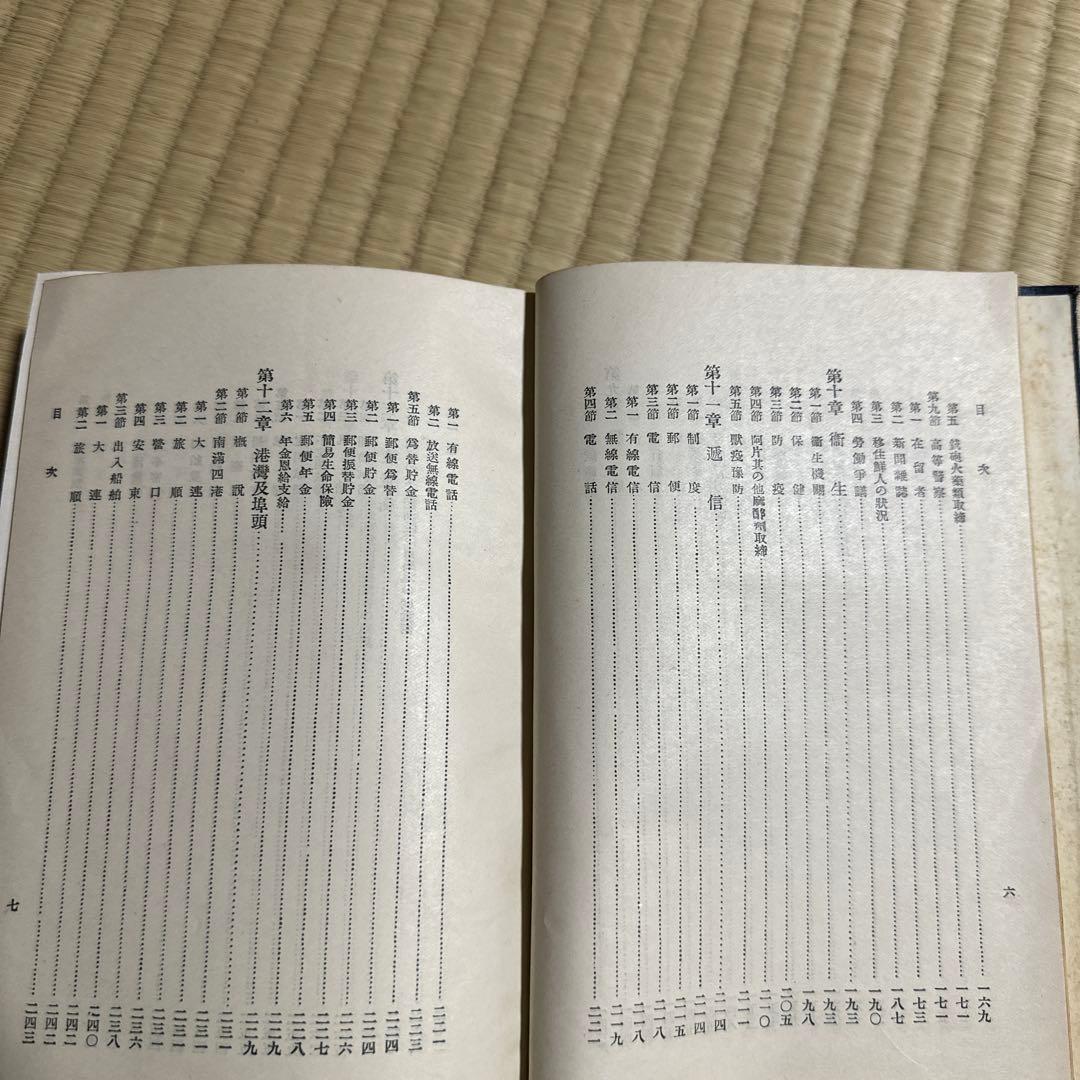 目次
第五 銃砲火藥類取締……一六九
第九節 高等警察……一七一
第一 在留者……一七一
第二 新聞雜誌……一七三
第三 移住鮮人の狀況……一八七
第四 勞働爭議……一九〇
第十章 衞生……一九三
第一節 衞生機關……一九三
第二節 保健……一九八
第三節 防疫……二〇五
第四節 阿片其の他麻醉劑取締……二一〇
第五節 獸疫豫防……二一一
第十一章 遞信……二一四
第一節 制度……二一四
第二節 郵便……二一五
第三節 電信……二一八
第一 有線電信……二一八
第二 無線電信……二一九
第四節 電話……二二一
六
第一 有線電話……二二一
第二 放送無線電話……二二三
第五節 爲替貯金……二二四
第一 郵便爲替……二二四
第二 郵便貯金……二二六
第三 郵便振替貯金……二二七
第四 簡易生命保險……二二八
第五 郵便年金……二二九
第六 年金恩給支給……二二九
第十二章 港灣及埠頭……二三一
第一節 槪說……二三一
第二節 南滿四港……二三一
第一 大連……二三一
第二 旅順……二三六
第三 營口……二三八
第四 安東……二四〇
第三節 出入船舶……二四二
第一 大連……二四二
第二 旅順……二四三
目次
七